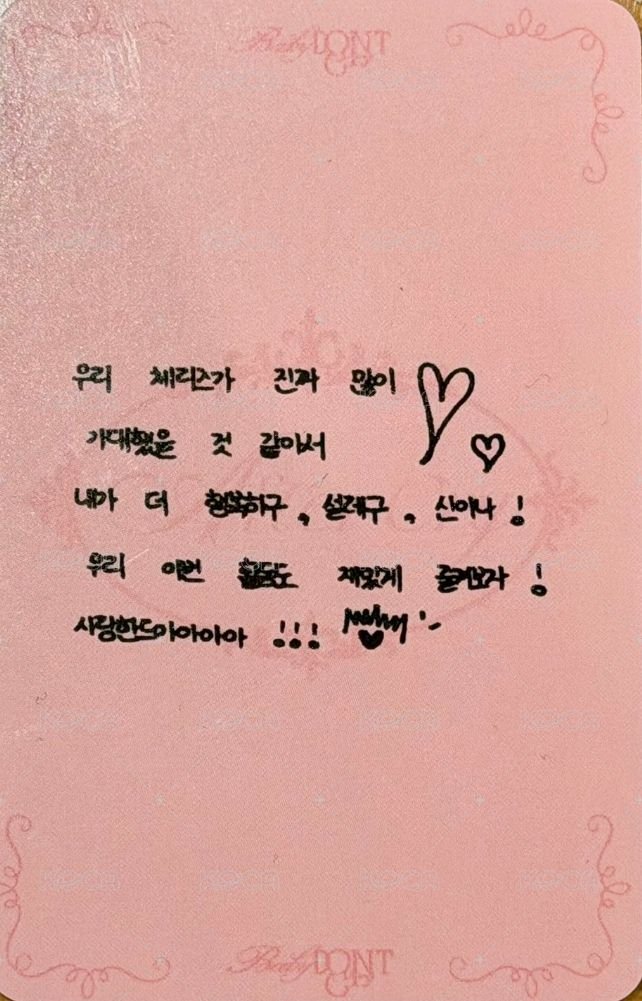 Baby DONT Cry
우리 체리즈가 진짜 많이
기대했을 것 같아서
내가 더 행복하구, 설레구, 신이나!
우리 이번 활동도 재밌게 즐겨보자!
사랑한드아아아아아!!!
Baby DONT Cry